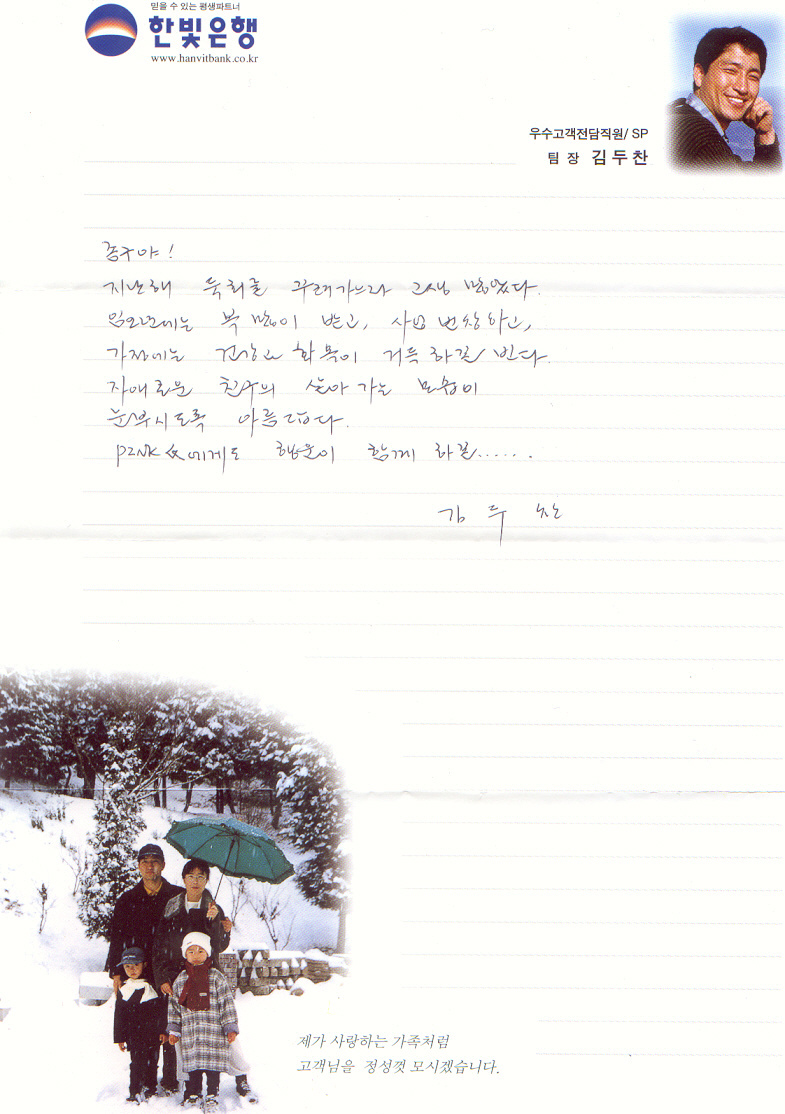 믿을 수 있는 평생파트너
한빛은행
www.hanvitbank.co.kr
우수고객전담직원/ SP
팀 장 김두찬
종구야!
지난해 득회를 꾸려가느라 고생 많았다.
임오년에는 복 많이 받고, 사업 번창하고,
가정에는 건강과 화목이 가득 하길 빈다.
자애로운 친구의 살아 가는 모습이
눈부시도록 아름답다.
에게도 행운이 함께 하길......
김 두 찬
제가 사랑하는 가족처럼
고객님을 정성껏 모시겠습니다.